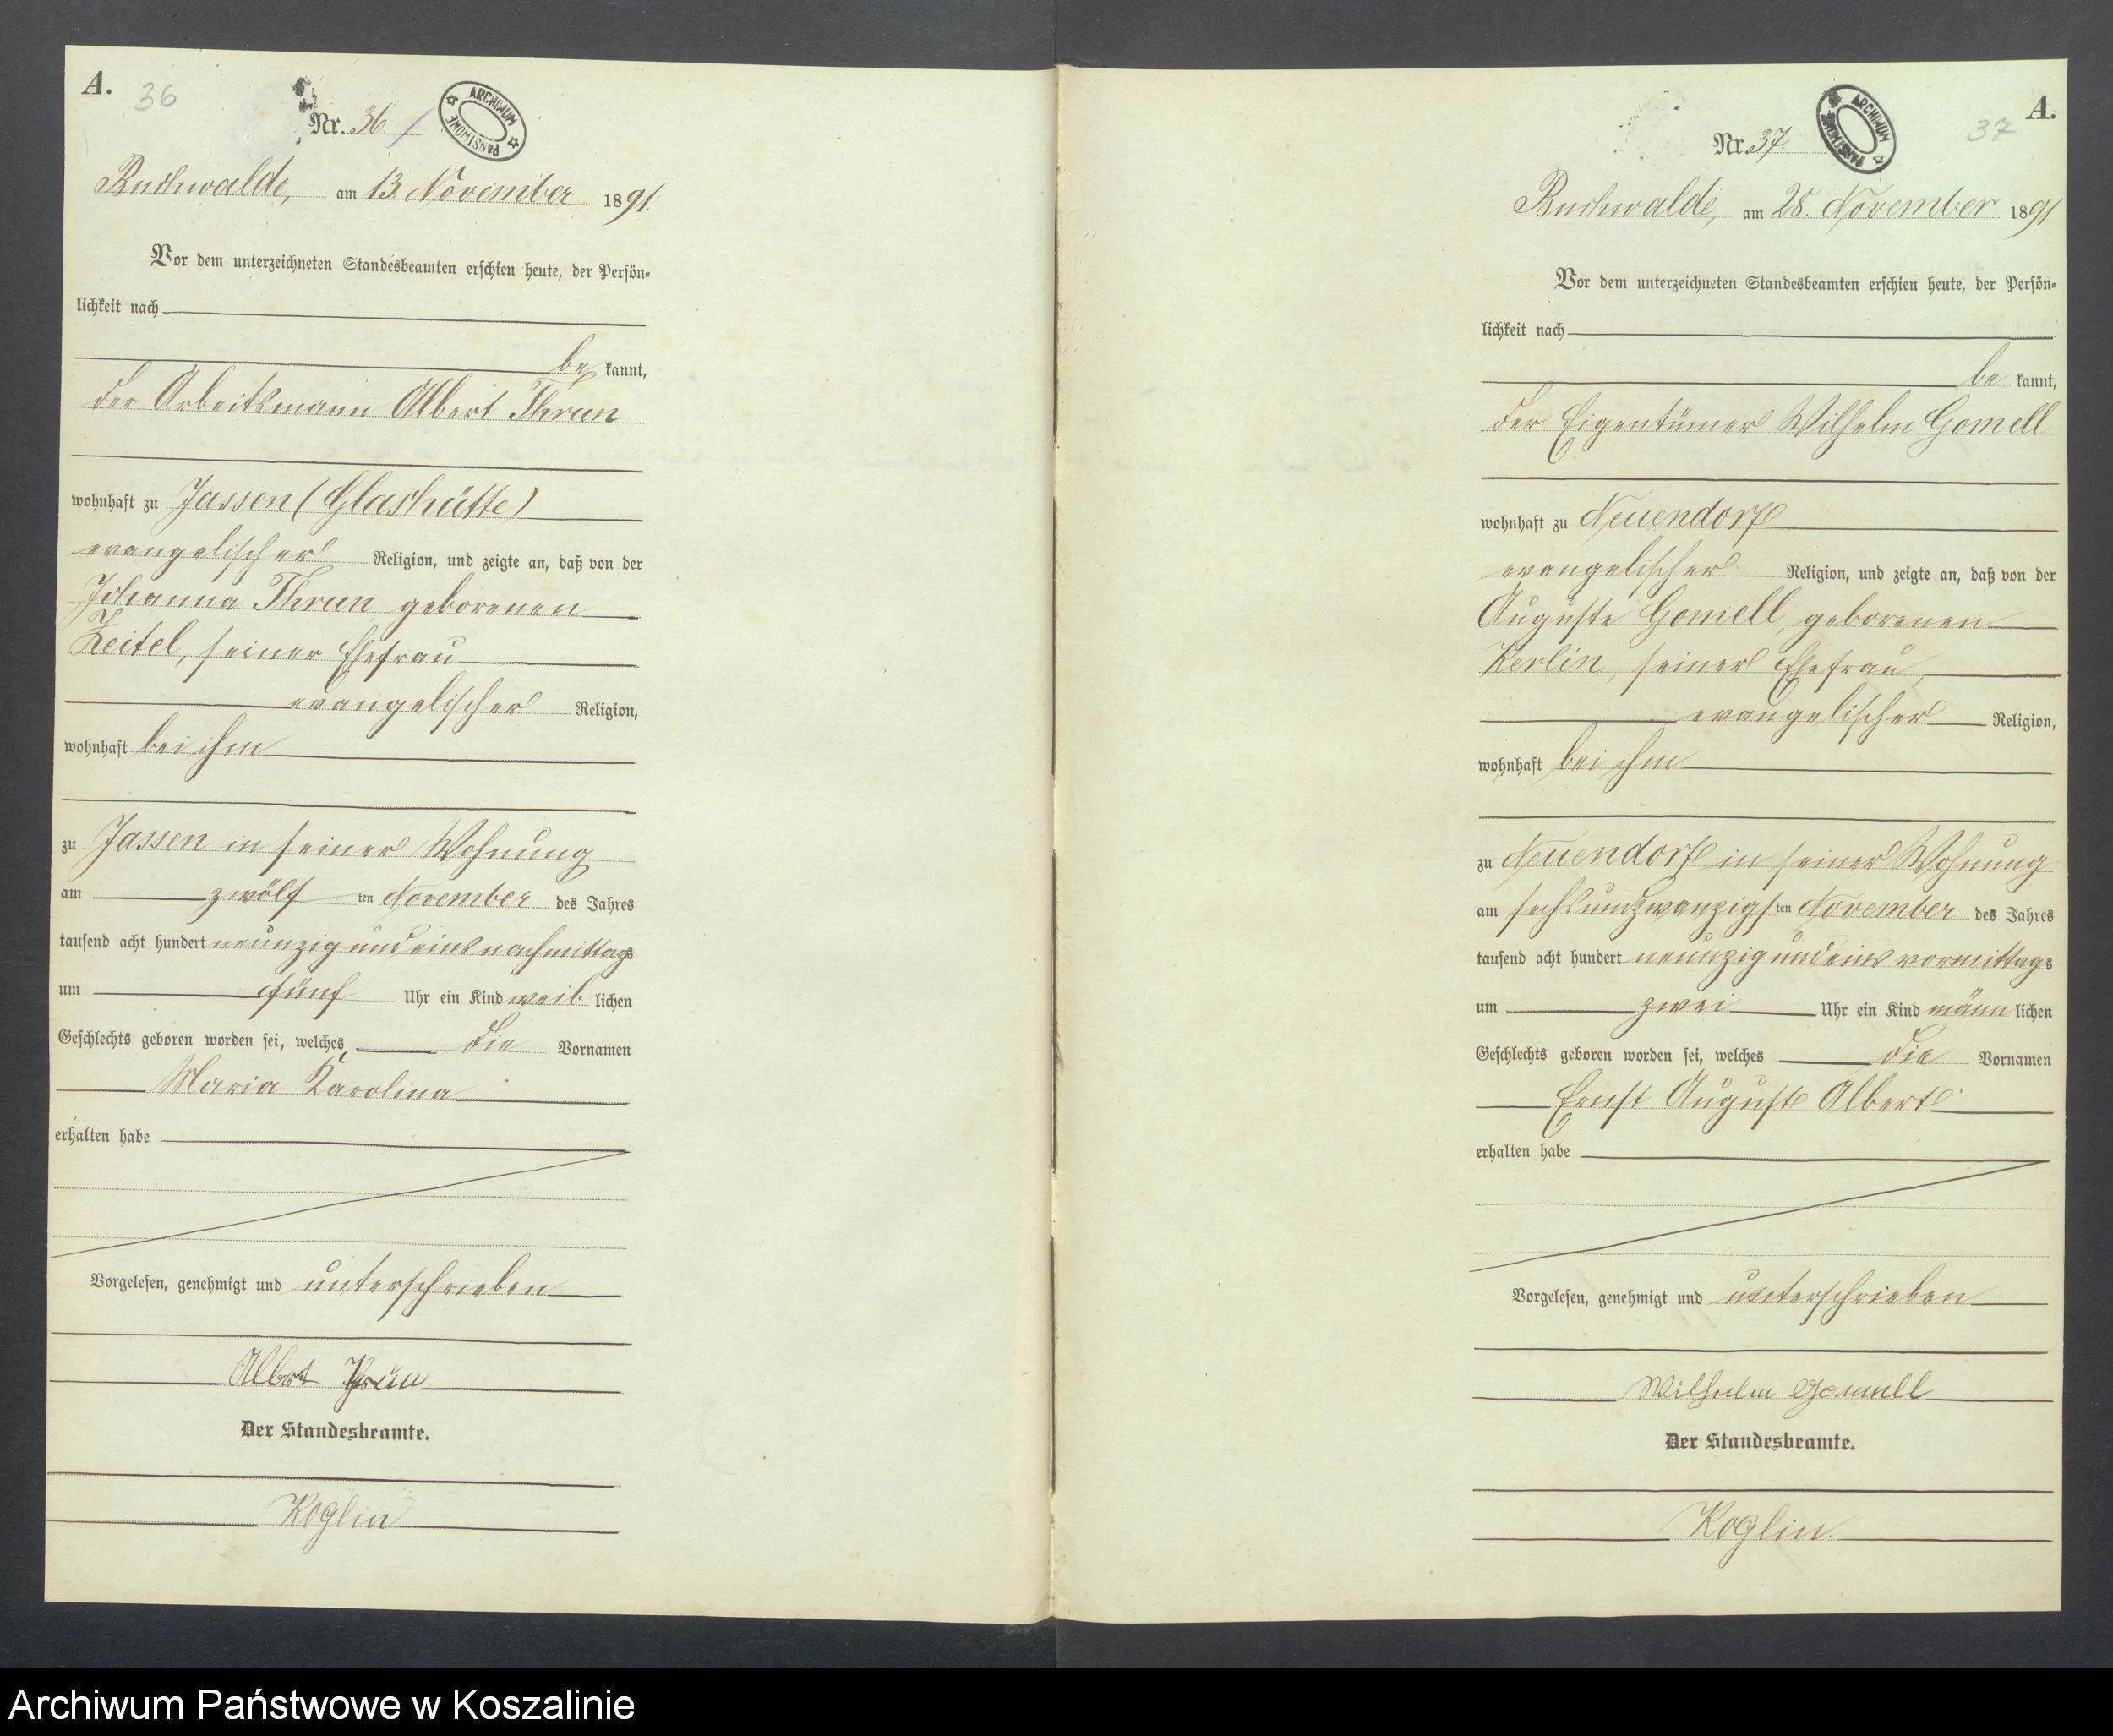 A.
36
Nr. 36
ARCHIWUM PANSTWOWE
Buchwalde, am 13. November 1891.
Vor dem unterzeichneten Standesbeamten erschien heute, der Persön-
lichkeit nach
be kannt,
der Arbeitsmann Albert Thrun
wohnhaft zu Jassen (Glashütte)
evangelischer Religion, und zeigte an, daß von der
Johanna Thrun geborenen
Zeitel, seiner Ehefrau
evangelischer Religion,
wohnhaft bei ihm
zu Jassen in seiner Wohnung
am zwölf ten November des Jahres
tausend acht hundert neunzig und eins nachmittags
um fünf Uhr ein Kind weib lichen
Geschlechts geboren worden sei, welches die Vornamen
Maria Karolina
erhalten habe
Vorgelesen, genehmigt und unterschrieben
Albert Thrun
Der Standesbeamte.
Koglin
A.
37
Nr. 37.
ARCHIWUM PANSTWOWE
Buchwalde, am 28. November 1891
Vor dem unterzeichneten Standesbeamten erschien heute, der Persön-
lichkeit nach
be kannt,
der Eigentümer Wilhelm Gomell
wohnhaft zu Neuendorf
evangelischer Religion, und zeigte an, daß von der
Auguste Gomell, geborenen
Kerlin, seiner Ehefrau,
evangelischer Religion,
wohnhaft bei ihm
zu Neuendorf in seiner Wohnung
am sechsundzwanzigs ten November des Jahres
tausend acht hundert neunzig und eins vormittags
um zwei Uhr ein Kind männ lichen
Geschlechts geboren worden sei, welches die Vornamen
Ernst August Albert
erhalten habe
Vorgelesen, genehmigt und unterschrieben
Wilhelm Gomell
Der Standesbeamte.
Koglin.
Archiwum Państwowe w Koszalinie